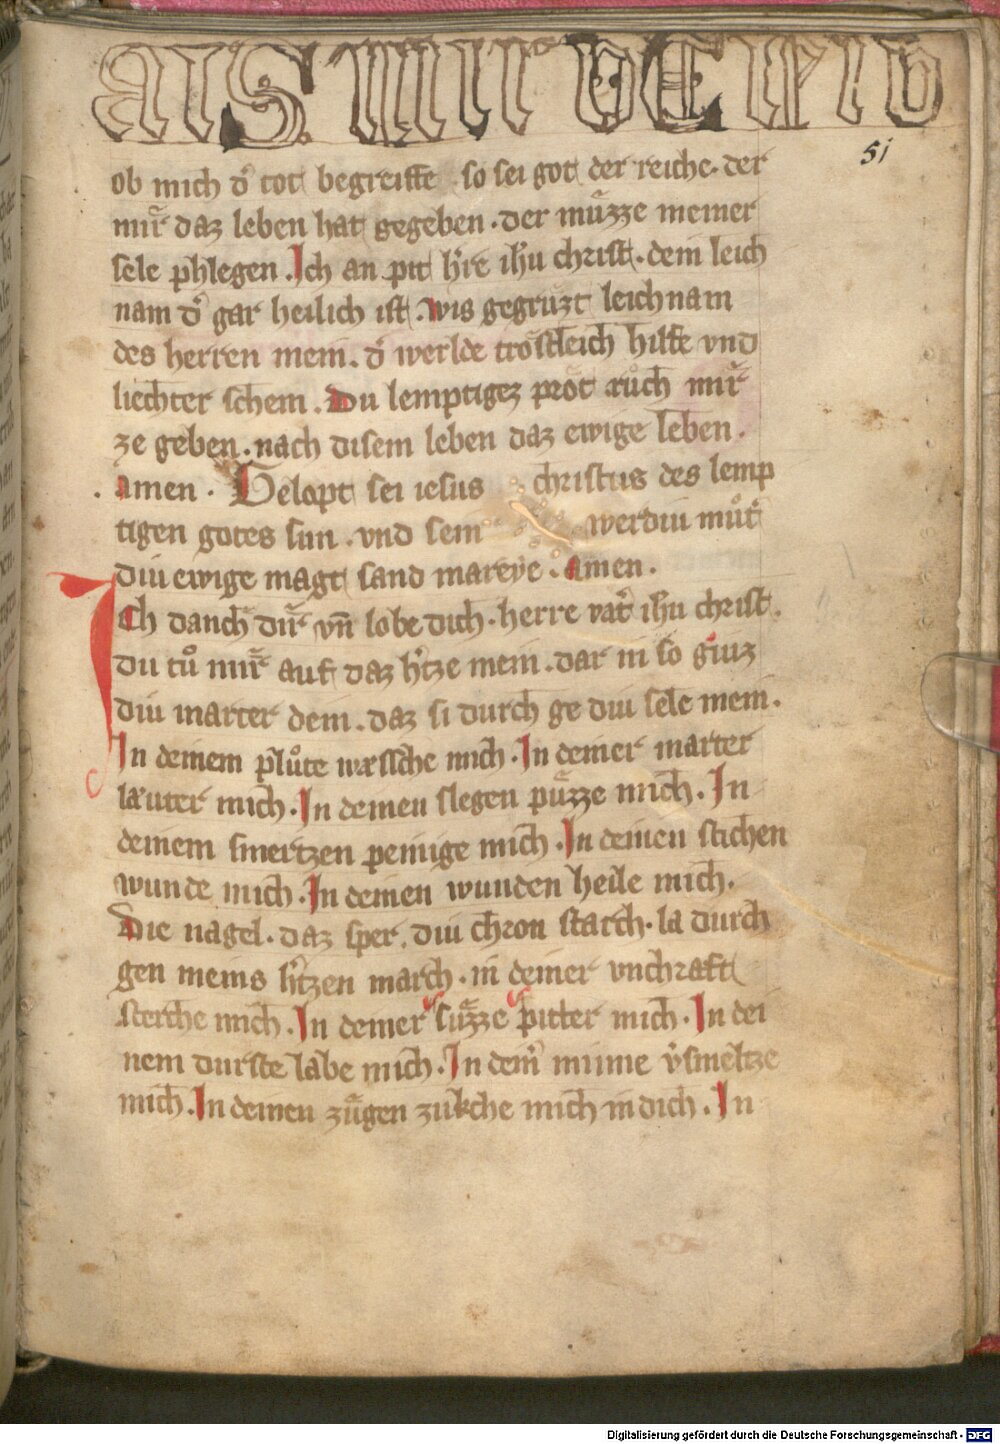 51
ob mich dˀ tot begreiffe so sei got der reiche. der
mir daz leben hat gegeben. der muͤzze meiner
sele phlegen. Ich an pit hˀre ihu christ. dein leich
nam dˀ gar heilich ist. wis gegruͤzt leichnam
des herren mein. dˀ werlde troͤstleich hilffe vnd
liechter schein. Du lemptigez proͤt ruͦch mir
ze geben. nach disem leben daz ewige leben.
amen. Gelopt sei iesus christus des lemp
tigen gotes sun. vnd sein werdiu muͦtˀ
diu ewige magt sand mareye. amen.
Ich danch dir vn̄ lobe dich. herre vatˀ ihu christ.
du tuͦ mir auf daz hˀtze mein. dar in so giuz
diu marter dein. daz si durch ge diu sele mein.
In deinem pluͦte wæssche mich. In deiner marter
læuter mich. In deinen slegen puͤzze mich. In
deinem smertzen peinige mich. In deinen stichen
wunde mich. In deinen wunden heile mich.
Die nagel. daz sper. diu chron starch. la durch
gen meins hˀtzen march. in deiner vnchraft
sterche mich. In deiner suͤzze pitter mich. In dei
nem durste labe mich. In deinˀ minne vˀsmeltze
mich. In deinen zuͤgen zukche mich in dich. In
Digitalisierung gefördert durch die Deutsche Forschungsgemeinschaft - DFG